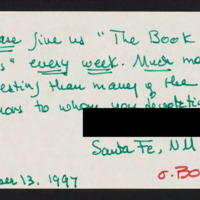 are give us "The Book
s" every week. Much mo
esting than many of the
ors to whom you devote
Santa Fe, NM
ber 13, 1997
σ. Bo